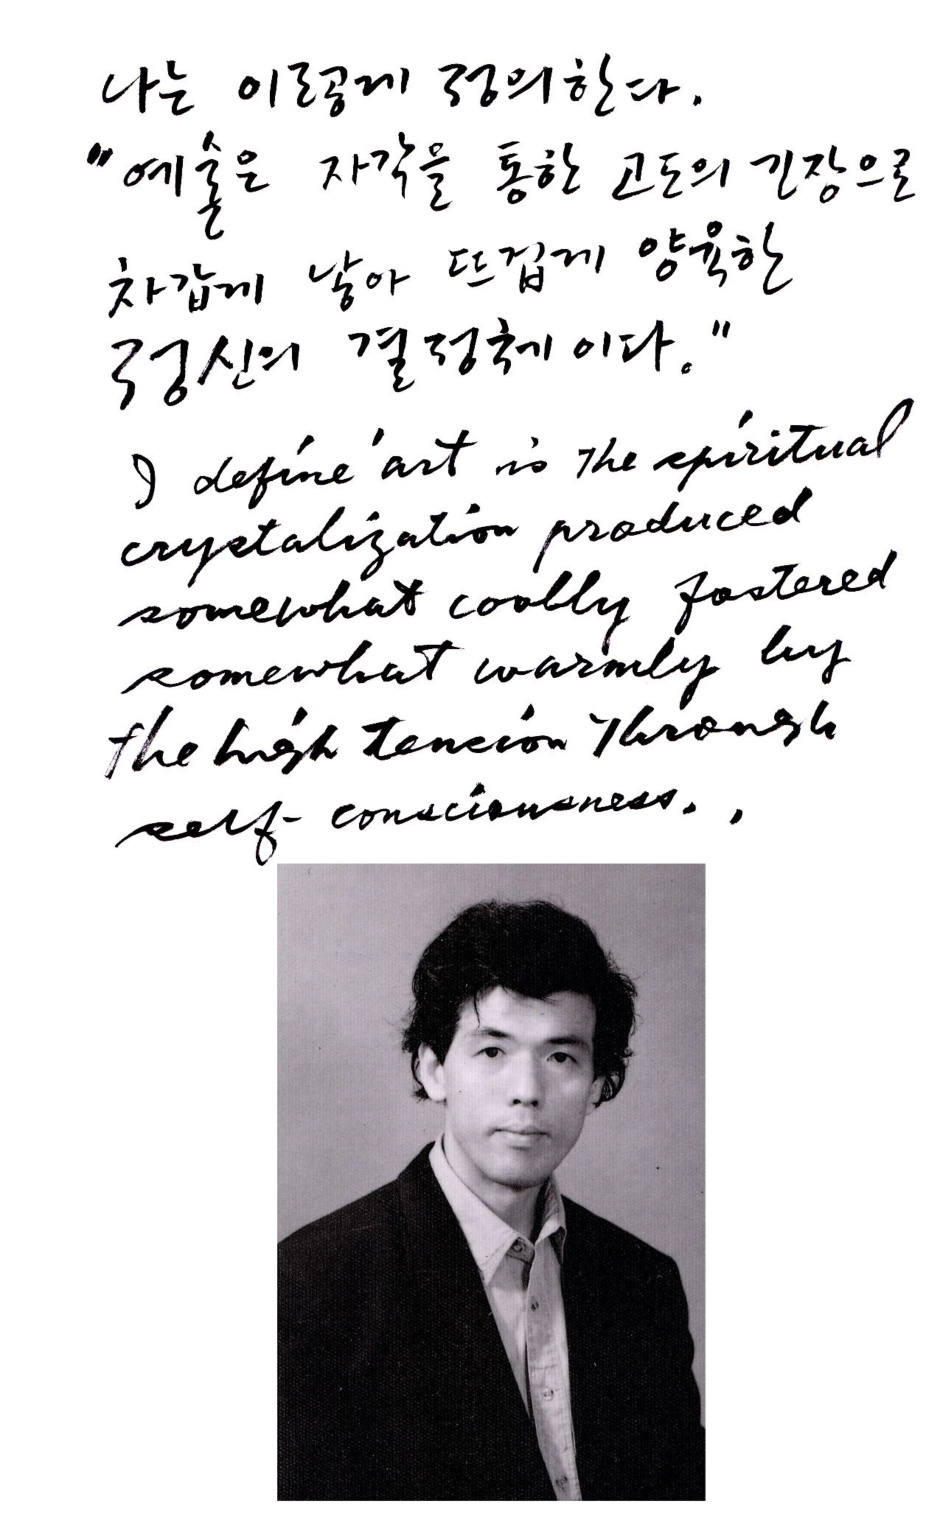 나는 이렇게 정의한다.
"예술은 자각을 통한 고도의 긴장으로
차갑게 낳아 뜨겁게 양육한
정신의 결정체이다."
I define 'art is the spiritual
crystalization produced
somewhat coolly fostered
somewhat warmly by
the high tension through
self-consciousness. ,